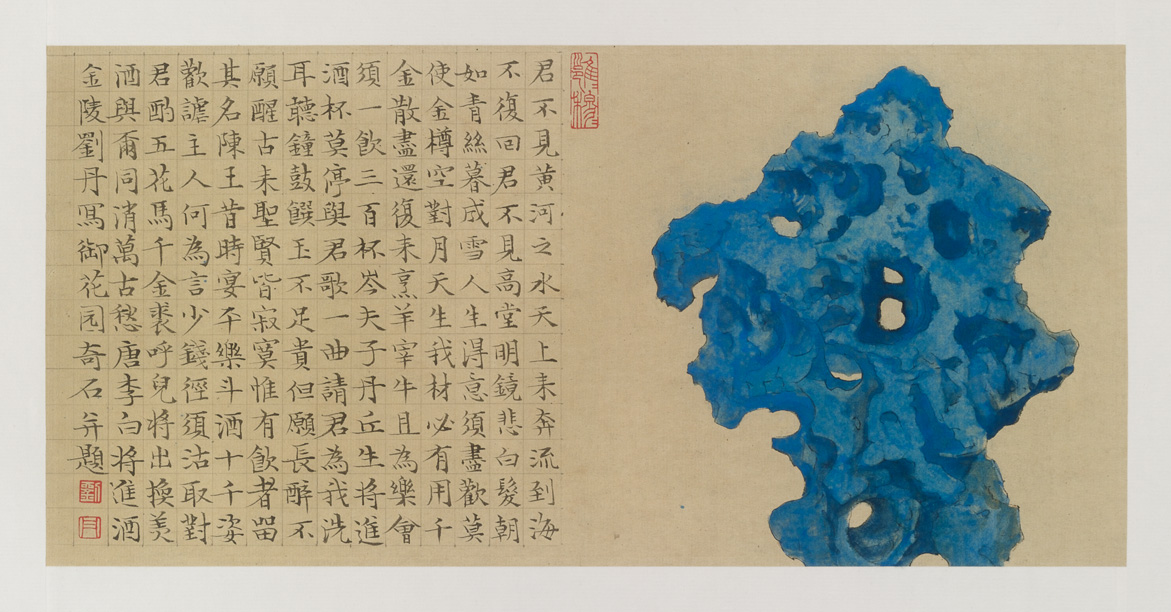 君不見黃河之水天上来奔流到海
不復回君不見高堂明鏡悲白髮朝
如青絲暮成雪人生得意須盡歡莫
使金樽空對月天生我材必有用千
金散盡還復来烹羊宰牛且為樂會
須一飲三百杯岑夫子丹丘生將進
酒杯莫停與君歌一曲請君為我洗
耳聽鐘鼓饌玉不足貴但願長醉不
願醒古来聖賢皆寂寞惟有飲者留
其名陳王昔時宴平樂斗酒十千姿
歡謔主人何為言少錢徑須沽取對
君酌五花馬千金裘呼兒将出換美
酒與爾同消萬古愁唐李白将進酒
金陵劉丹寫御花园奇石并題
劉
丹